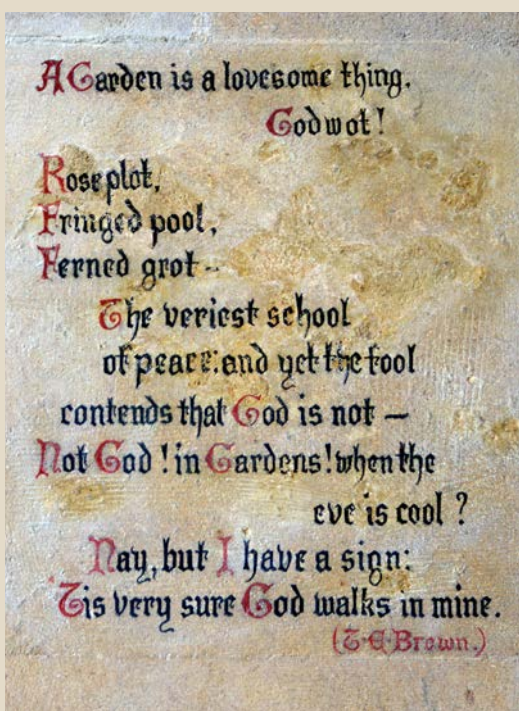 A Garden is a lovesome thing.
God wot!
Rose plot,
Fringed pool,
Ferned grot -
The veriest school
of peace: and yet the fool
contends that God is not —
Not God! in Gardens! when the
eve is cool?
Nay, but I have a sign:
Tis very sure God walks in mine.
(T·E·Brown.)